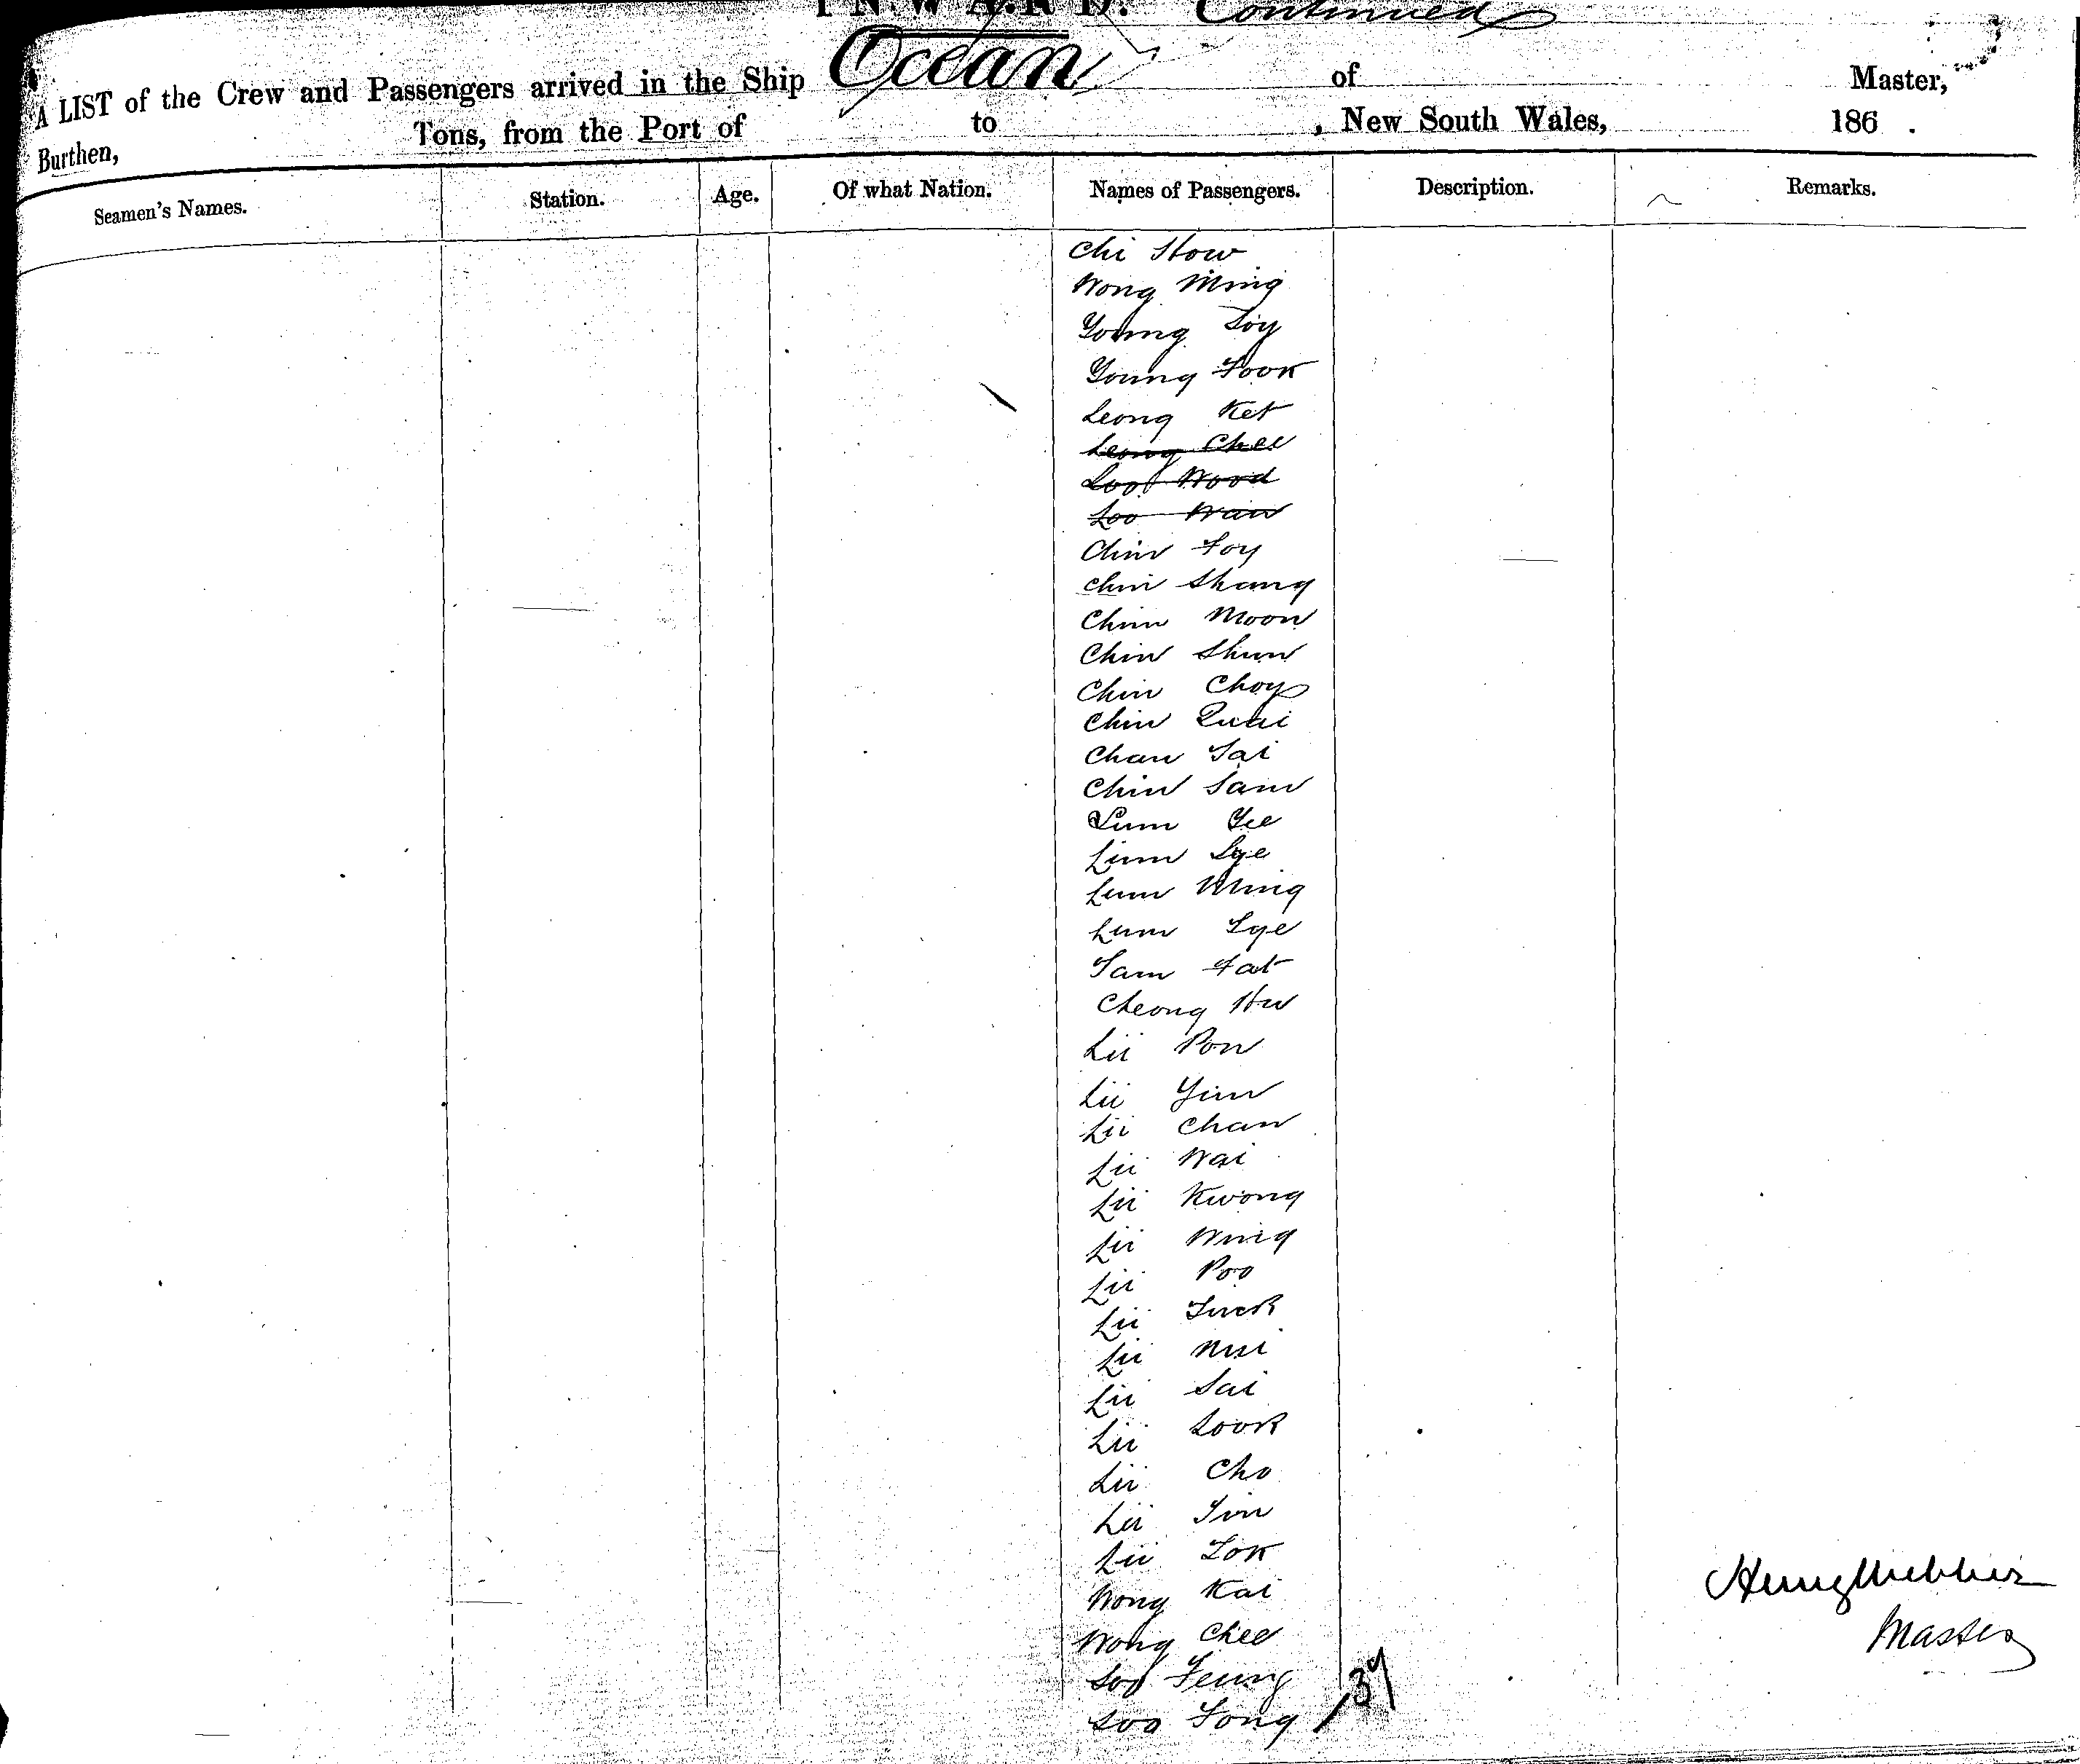 INWARD. Continued
A LIST of the Crew and Passengers arrived in the Ship Ocean of Master,
Burthen, Tons, from the Port of to , New South Wales, 186 .
Seamen's Names. Station. Age. Of what Nation. Names of Passengers. Description. Remarks.
Chi How
Wong Ming
Young Soy
Young Fook
Leong Ket
Leong Chee
Loo Wood
Loo Wan
Chin Foy
Chin Shang
Chin Moon
Chin Shun
Chin Choy
Chin Quai
Chan Tai
Chin Sam
Lum Yee
Lum Lye
Lum Ming
Lum Lye
Tam Fat
Cheong Hee
Lii Pon
Lii Yim
Lii Chan
Lii Wai
Lii Kwong
Lii Wing
Lii Poo
Lii Luck
Lii
Lii Sai
Lii Look
Lii Cho
Lii
Lii Lok
Wong Kai
Wong Chee
Soo Feung
Soo Fong 37
Henry Webber
Master